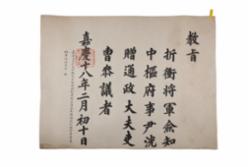 教旨
折衝將軍僉知
中樞府事尹
贈通政大夫吏
曹參議者
嘉慶十八年二月初十日